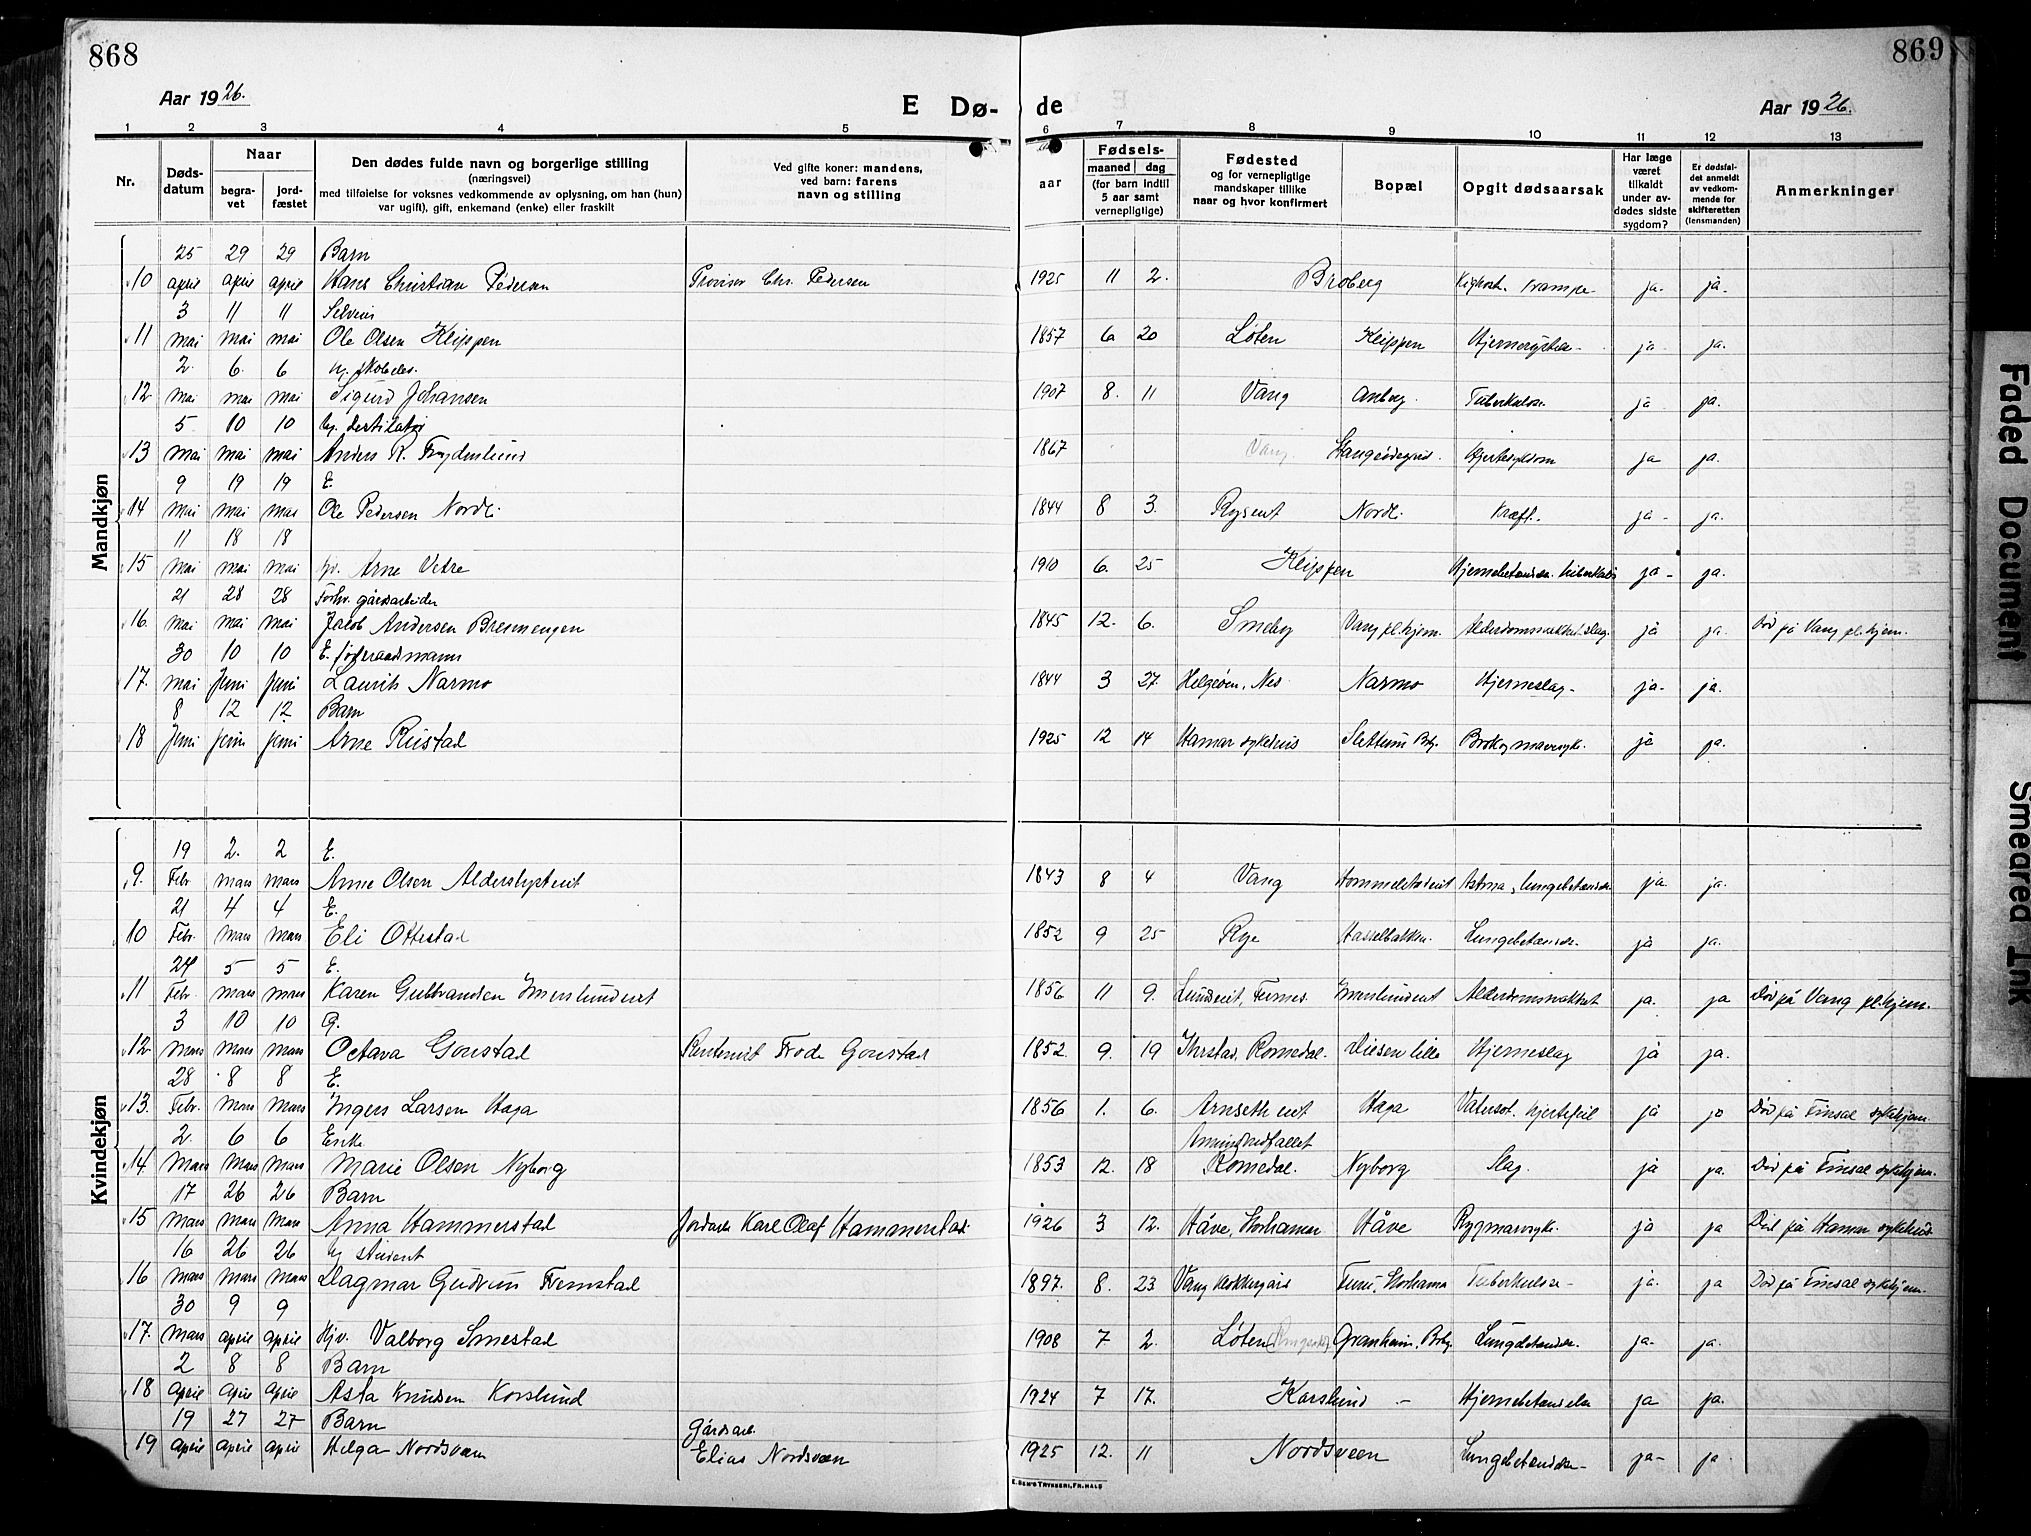 868
869
Aar 1926.
E Dø-
de
Aar 1926.
1 2 3 4 5 6 7 8 9 10 11 12 13
Nr.
Døds-
datum
Naar
begra-
vet
jord-
fæstet
Den dødes fulde navn og borgerlige stilling
(næringsvei)
med tilføielse for voksnes vedkommende av oplysning, om han (hun)
var ugift), gift, enkemand (enke) eller fraskilt
Ved gifte koner: mandens,
ved barn: farens
navn og stilling
Fødsels-
aar
maaned dag
(for barn indtil
5 aar samt
vernepligtige)
Fødested
og for vernepligtige
mandskaper tillike
naar og hvor konfirmert
Bopæl
Opgit dødsaarsak
Har læge
været
tilkaldt
under av-
dødes sidste
sygdom?
Er dødsfal-
det anmeldt
av vedkom-
mende for
skifteretten
(lensmanden)
Anmerkninger
Mandkjøn
25 29 29 Barn
10 april april april Hans Christian Pedersen Provisor Chr. Pedersen 1925 11 2. Broberg ja. ja.
3 11 11 Selveier
11 mai mai mai Ole Olsen Klippen 1857 6 20 Løten Klippen ja ja.
2. 6. 6
12 mai mai mai Sigurd Johansen 1907 8. 11 Vang Tuberkulose ja ja.
5 10 10
13 mai mai mai Anders R. Frydenlund 1867 Vang Hjertesykdom ja ja.
9 19 19 E.
14 mai mai mai Ole Pedersen Nordli 1844 8 3. Nordli Kræft. ja ja.
11 18 18
15 mai mai mai Arne Vetre 1910 6. 25 Klippen ja ja.
21 28 28 Forhv. gårdsarbeider
16. mai mai mai Jacob Andersen Bresmengen 1845 12. 6. Smeby Vang pl.hjem. ja ja. Død på Vang pl.hjem.
30 10 10 E. føderaadsmann
17. mai Juni Juni Laurits Narmo 1844 3 27. Helgøen, Nes Narmo Hjerneslag ja ja.
8 12 12 Barn
18 Juni Juni Juni Arne Rustad 1925 12 14 Hamar sykehus ja ja.
Kvindekjøn
19 2. 2 E.
9. Febr mars mars Anne Olsen 1843 8 4 Vang Astma, lungebetændelse ja ja.
21 4 4 E.
10 Febr. mars mars Eli Ottestad 1852 9 25 Hasselbakken. Lungebetændelse ja ja.
24 5 5 E.
11 Febr. mars mars Karen Gulbrandsen Imerslundeit 1856 11 9. Imerslundeit Alderdomssvakhet ja. ja Død på Vang pl.hjem.
3 10 10 G.
12 mars mars mars Octava Gonstad Rentenist Frode Gonstad 1852. 9. 19 Romedal. Hjerneslag ja ja.
28 8 8 E.
13. Febr. mars mars Inger Larsen Haga 1856 1. 6. Haga Vatersot. hjertefeil ja ja Død på Finsal sykehjem.
2. 6 6 Enke
14. mars mars mars Marie Olsen Nyborg 1853 12. 18 Romedal. Nyborg Slag. ja ja. Død på Finsal sykehjem.
17 26 26 Barn
15 mars mars mars Anna Hammerstad Karl Olaf Hammerstad 1926 3 12. Håve, Storhamar Håve ja ja Død på Hamar sykehus
16 26 26 student
16 mars mars mars Dagmar Gudrun Fremstad 1897. 8. 23 Vang Tuberkulose ja. ja Død på Finsal sykehjem.
30 9 9
17. mars april april Valborg Smestad 1908 7 2. Løten Granheim. Lungebetændelse ja ja.
2 8 8 Barn
18 april april april Asta Knudsen Korslund 1924 7 17. Korslund Hjernebetændelse ja ja.
19 27 27 Barn Gårdsarb.
19 april april april Helga Nordsveen Elias Nordsveen 1925 12. 11 Nordsveen Lungebetændelse ja ja.
Faded Document
Smeared Ink